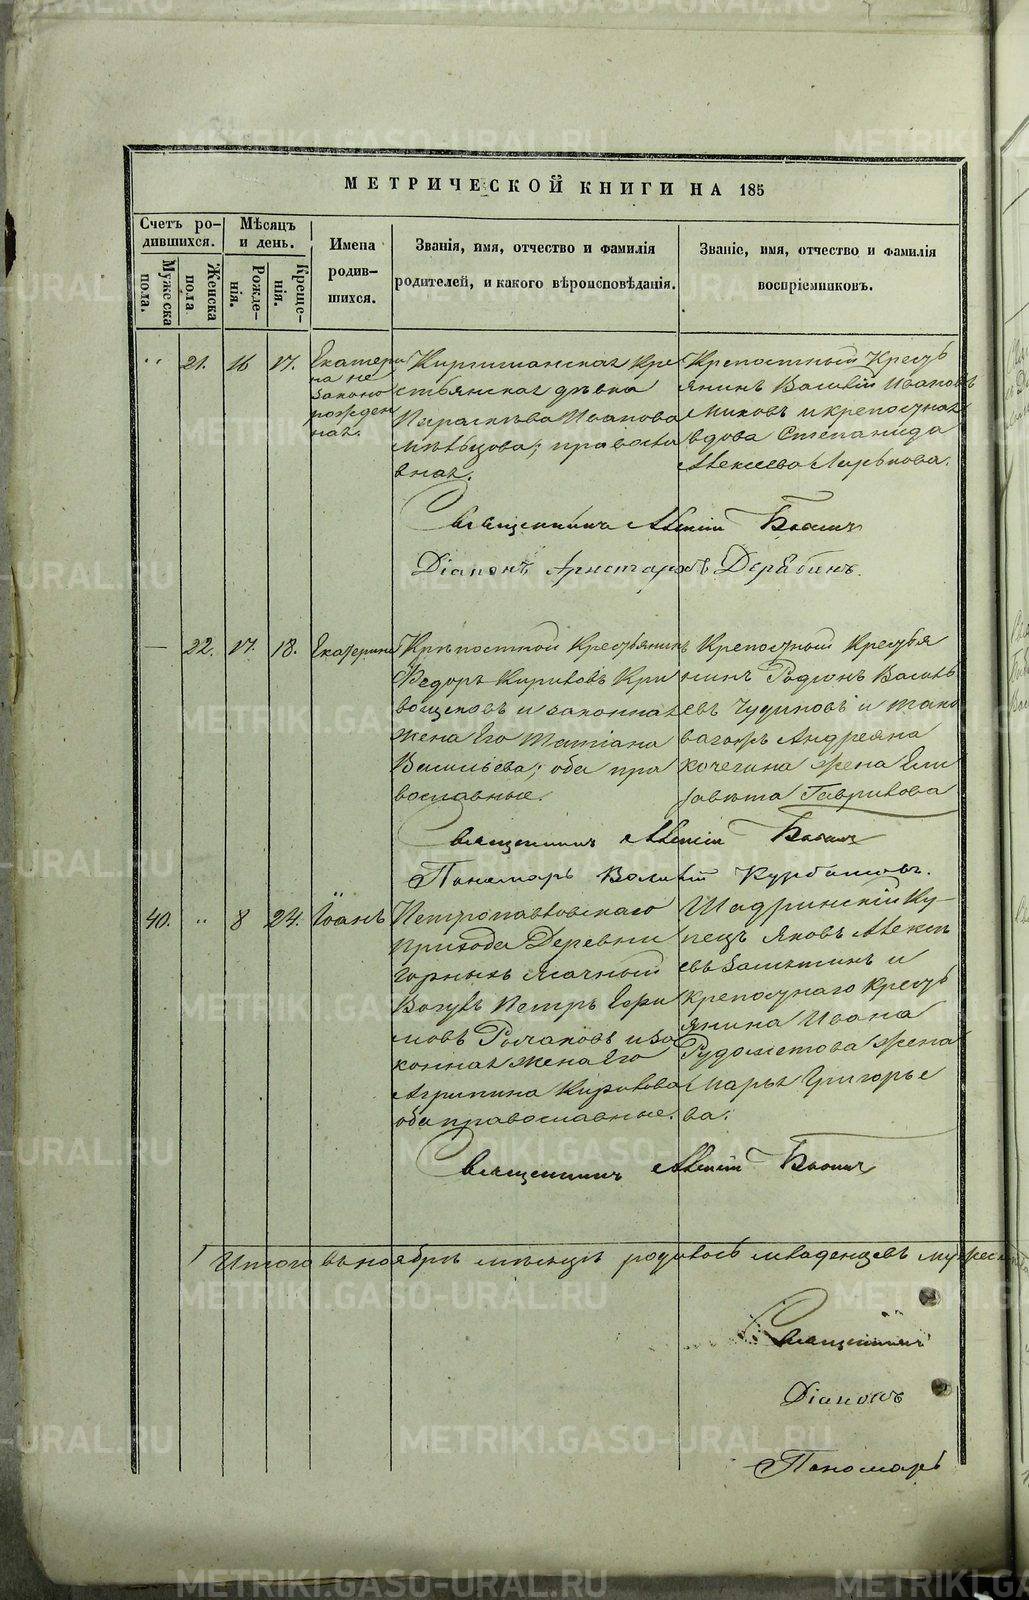 МЕТРИЧЕСКОЙ КНИГИ НА 185
Счетъ ро-
дившихся.
Мужеска
пола.
Женска
пола
Мѣсяцъ
и день.
Рожде-
нія.
Креще-
нія.
Имена
родив-
шихся.
Званія, имя, отчество и фамилія
родителей, и какого вѣроисповѣданія.
Званіе, имя, отчество и фамилія
воспріемниковъ.
21. 16 17.
Екатери
на не
законо
рожден
ная.
кре
стьянская дѣвка
Параскева Иванова
православ
ная.
Крепостный Кресть
янинъ Василій Иванов
и крепостная
вдова Степанида
Алексеева
Священникъ Алексій
Діаконъ Аристархъ Дерябинъ.
22. 17. 18. Екатерина
Крѣпостной Крестьянинъ
Федоръ Кириловъ Кри
вощековъ и законная
жена Его Татіана
Васильева; оба пра
вославные.
Крепостный Крестья
нинъ Родіонъ Василь
евъ Чудиновъ и тако
вагожъ Андреяна
Кочегина жена Ели
завета Гаврилова
Священникъ Алексій
Пономарь Василій Курбатовъ.
40. 8 24. Іоанъ
Петропавловскаго
Прихода Деревни
Ясачный
Вогулъ Петръ Ефи
мовъ и за
конная жена Его
Агрипина Кирилова
оба православные.
Шадринскій Ку-
пецъ Яковъ Алексе
евъ и
крепостнаго кресть
янина Ивана
Рудометова жена
Марья Григорье
ва.
Священникъ Алексій
Итого въ ноябрѣ месяцѣ родилось младенцевъ мужес
Священникъ
Діаконъ
Пономарь
METRIKI.GASO-URAL.RU